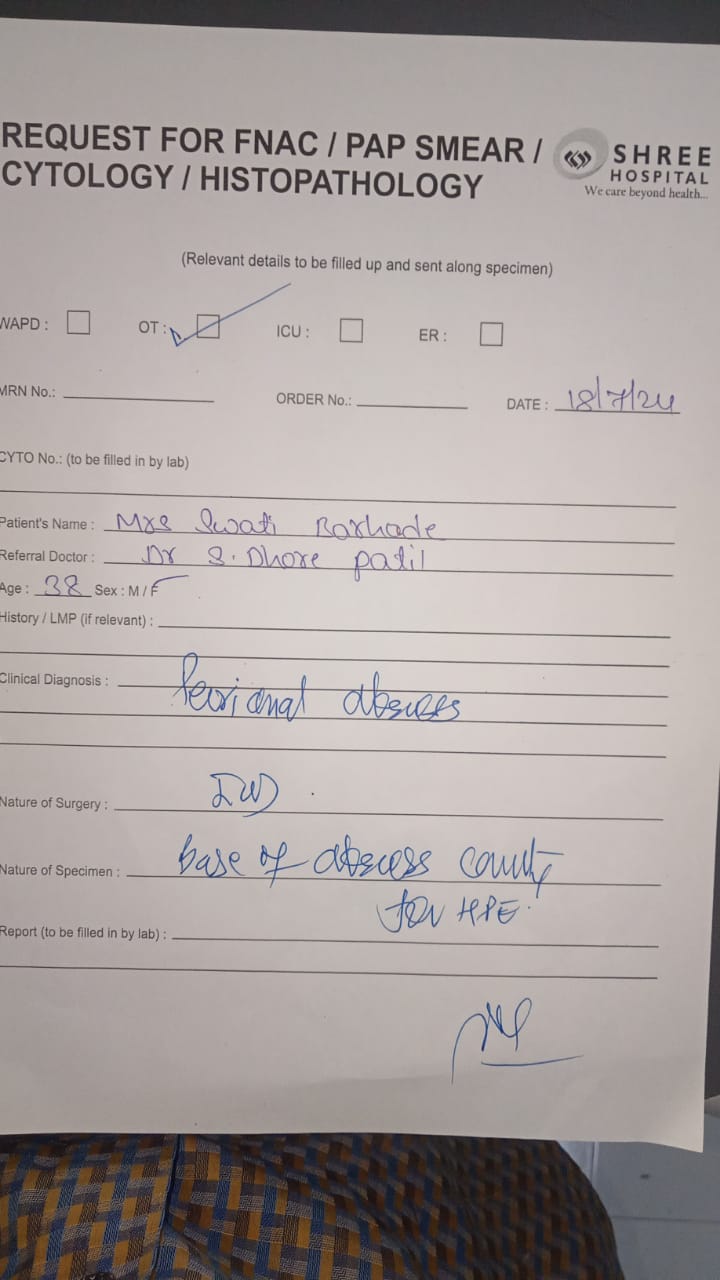 REQUEST FOR FNAC / PAP SMEAR /
CYTOLOGY / HISTOPATHOLOGY
SHREE
HOSPITAL
We care beyond health...
(Relevant details to be filled up and sent along specimen)
WAPD : OT : ICU : ER :
MRN No.: ORDER No.: DATE : 18/7/24
CYTO No.: (to be filled in by lab)
Patient's Name : Mrs Swati Barhade
Referral Doctor : Dr S. Dhore patil
Age : 38 Sex : M / F
History / LMP (if relevant) :
Clinical Diagnosis : Perianal abscess
Nature of Surgery :
Nature of Specimen : base of abscess cavity
for HPE.
Report (to be filled in by lab) :